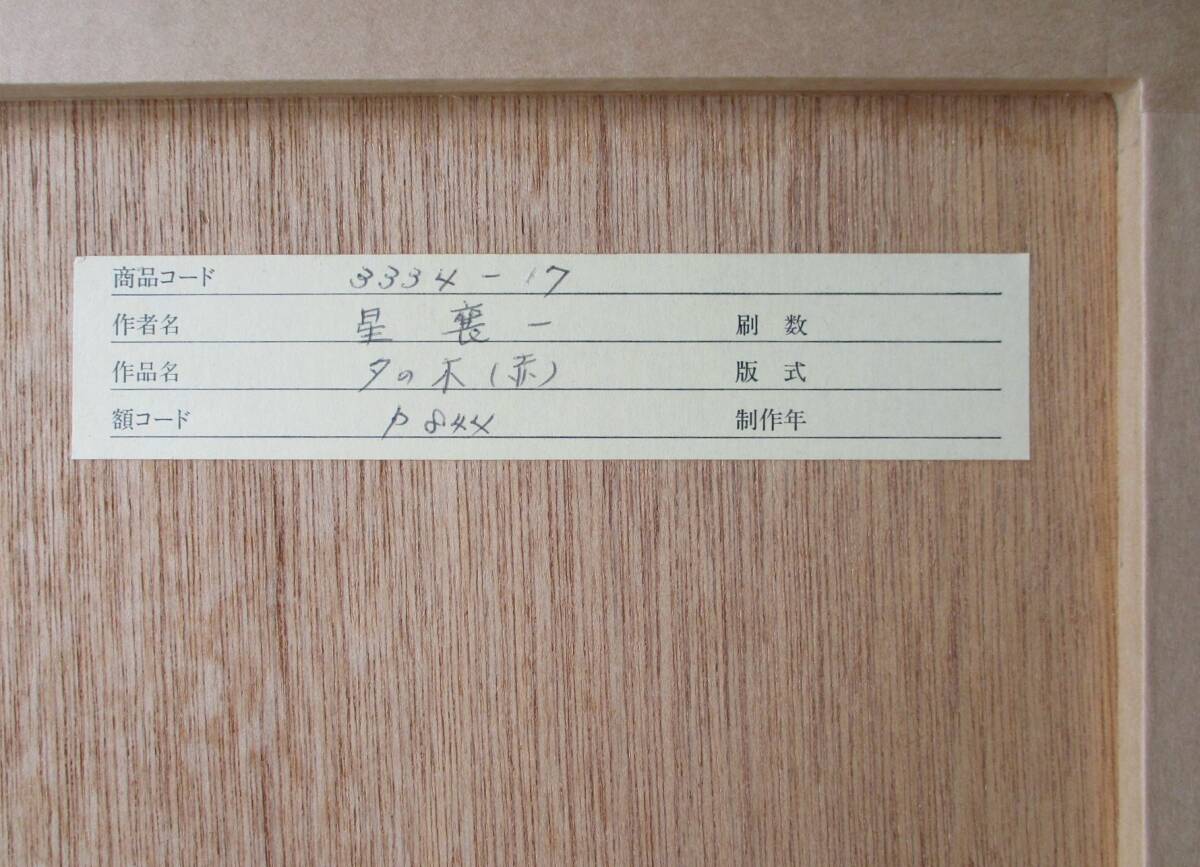 商品コード 3334-17
作者名 星 襄一 刷 数
作品名 夕の木(赤) 版 式
額コード P844 制作年